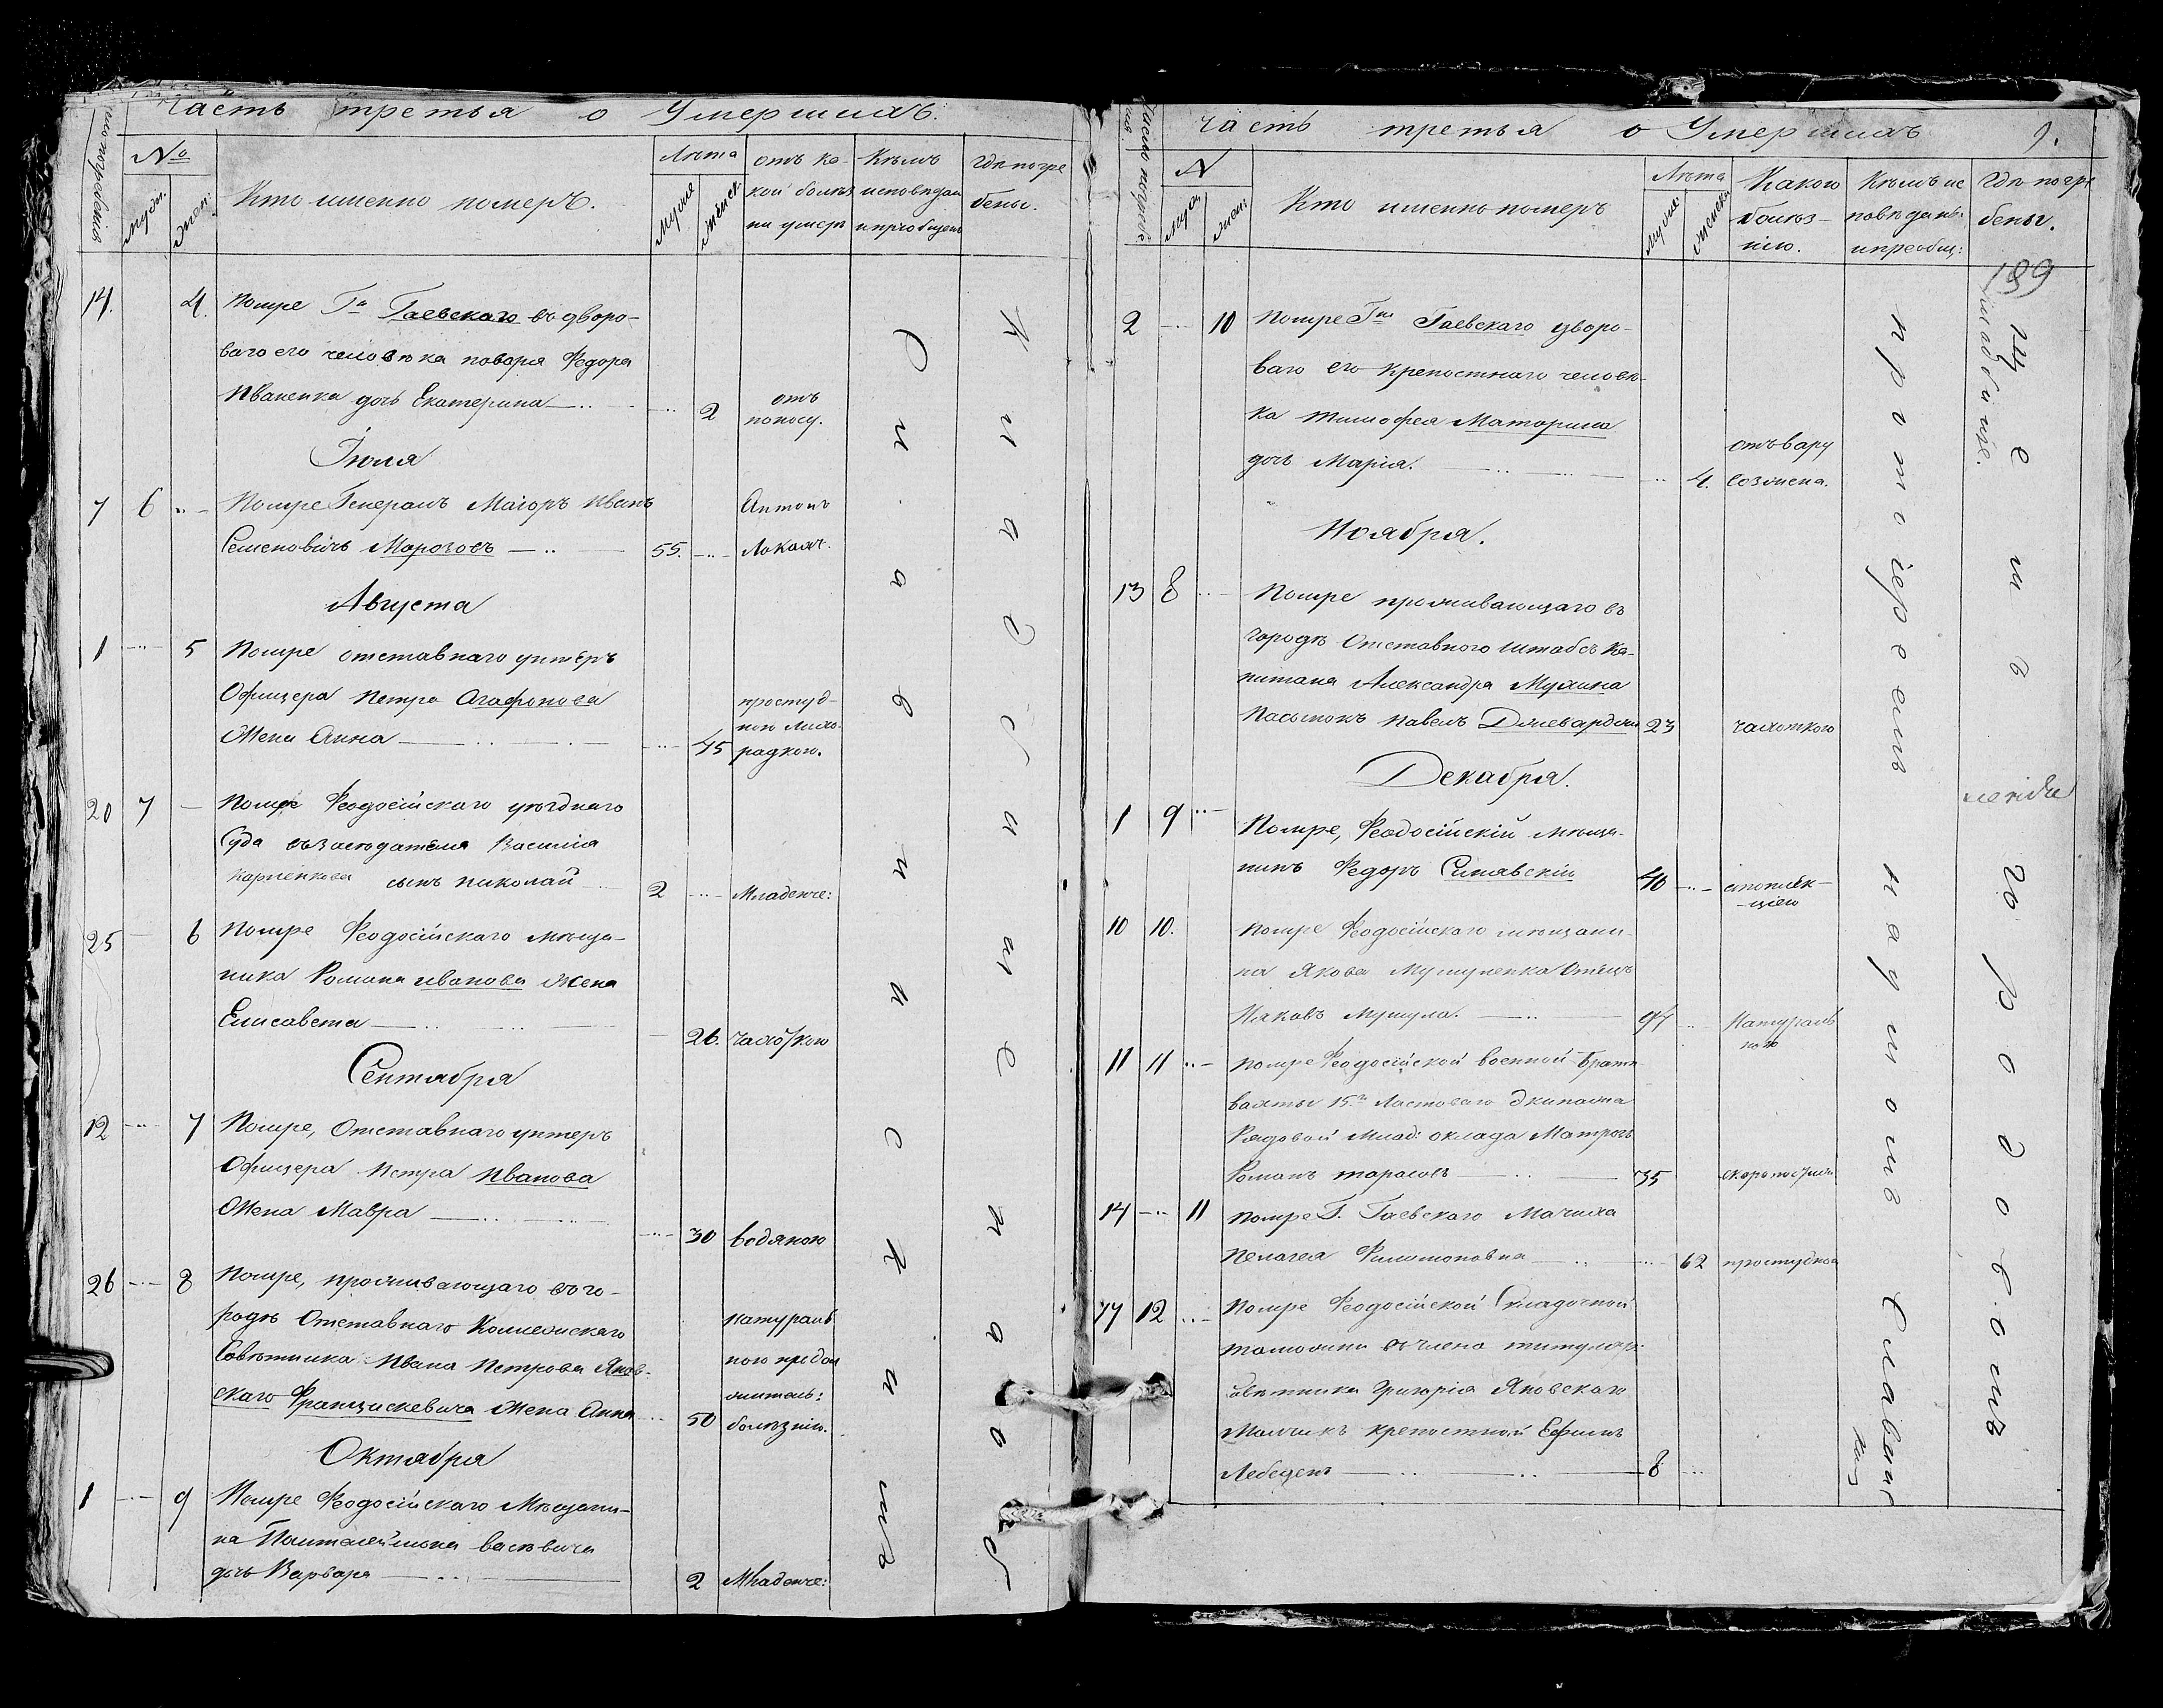 Часть третья о Умершихъ.
число погребенія
№
мужи.
жен.
Кто именно померъ.
Лѣта
Мужие
Женск.
отъ ка-
кой болѣз
ни умеръ
Кѣмъ
исповѣдан
и приобщенъ
гдѣ погре
бены.
14. 4. Помре Гна Гаевскаго въ дворо-
ваго его человѣка повора Федора
Иваненка дочь Екатерина 2 отъ
поносу.
Іюля
7 6 Помре Генералъ Маіоръ Иванъ Антонъ
Семеновичъ Морозовъ 55. Локаяч.
Августа
1 5 Помре отставнаго унтеръ
Офицера Петра Агафонова
Жена Анна 45 простуд-
ною лихо-
радкою.
20 7 Помре Феодосійскаго уѣзднаго
Суда въ засѣдателя Василія
сынъ Николай 2 Младенче:
25 6 Помре Феодосійскаго мѣща-
нина Романа Иванова Жена
Елисавета 26. чахоткою
Сентября
12 7 Помре, Отставнаго унтеръ
Офицера Петра Иванова
Жена Мавра 30 водяною
26 8 Помре, проживающаго въ го-
родѣ Отставнаго Коллежскаго
Совѣтника Ивана Петрова Янов-
скаго Францискевича Жена Анна 50 натураль
ною продол
житель:
болѣзнію.
Октября
1 9 Помре Феодосійскаго Мѣщани-
на Понталеймона васѣвича
дочь Варвара 2 Младенче:
Часть третья о Умершихъ 9.
Число погребе
нія
N
Муж
жен:
Кто именно померъ
Лѣта
мужие
женска
Какою
болѣз-
нію.
Кѣмъ ис
повѣданъ
и преобщ:
Гдѣ погре
бены.
189
2 10 Помре Гна Гаевскаго уворо-
ваго его крепостнаго человѣ-
ка Тимофея Маторина
дочь Марія. 4. отъ вару
созжена.
Ноября.
13 8 Помре проживающаго въ
городѣ Отставного штабсъ Ка-
питана Александра Мухина
Пасынокъ Павелъ 23 чахоткою
Декабря.
1 9 Помре, Феодосійскій мѣща-
нинъ Федоръ Синявскій 40 апоплек-
-ціею
10 10. Помре Феодосійскаго мѣщани-
на Якова Мушуленка Отецъ
Иаковъ Мушула. 94 Натураль
ною
11 11 Помре Феодосійской военной Брант-
вахты 15го Ластоваго Экипажа
Рядовой Млад: оклада Матрозъ
Романъ тарасовъ 35 скоропостиж
14 11 Помре Г. Гаевскаго Мачиха
Пелагея Филимоновна 62 простудною
17 12 Помре Феодосійской Складочной
таможни въ члена титуляр:
Совѣтника Григорія Яновскаго
Мальчикъ крепостной Ефимъ
Лебеденъ 8
протоіереемъ